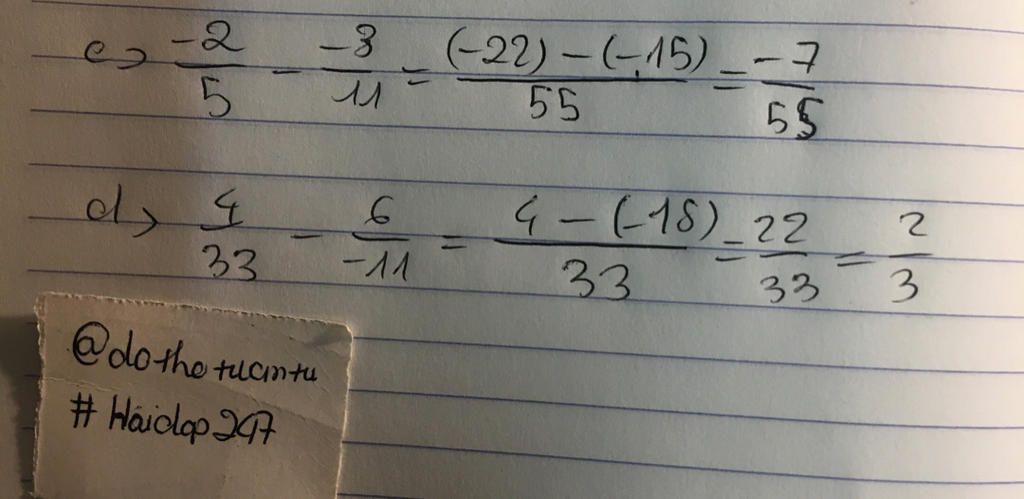 c> -2/5 - -3/11 = (-22) - (-15)/55 = -7/55
d> 4/33 - 6/-11 = 4 - (-18)/33 = 22/33 = 2/3
@dothetuantu
# Hoidap247